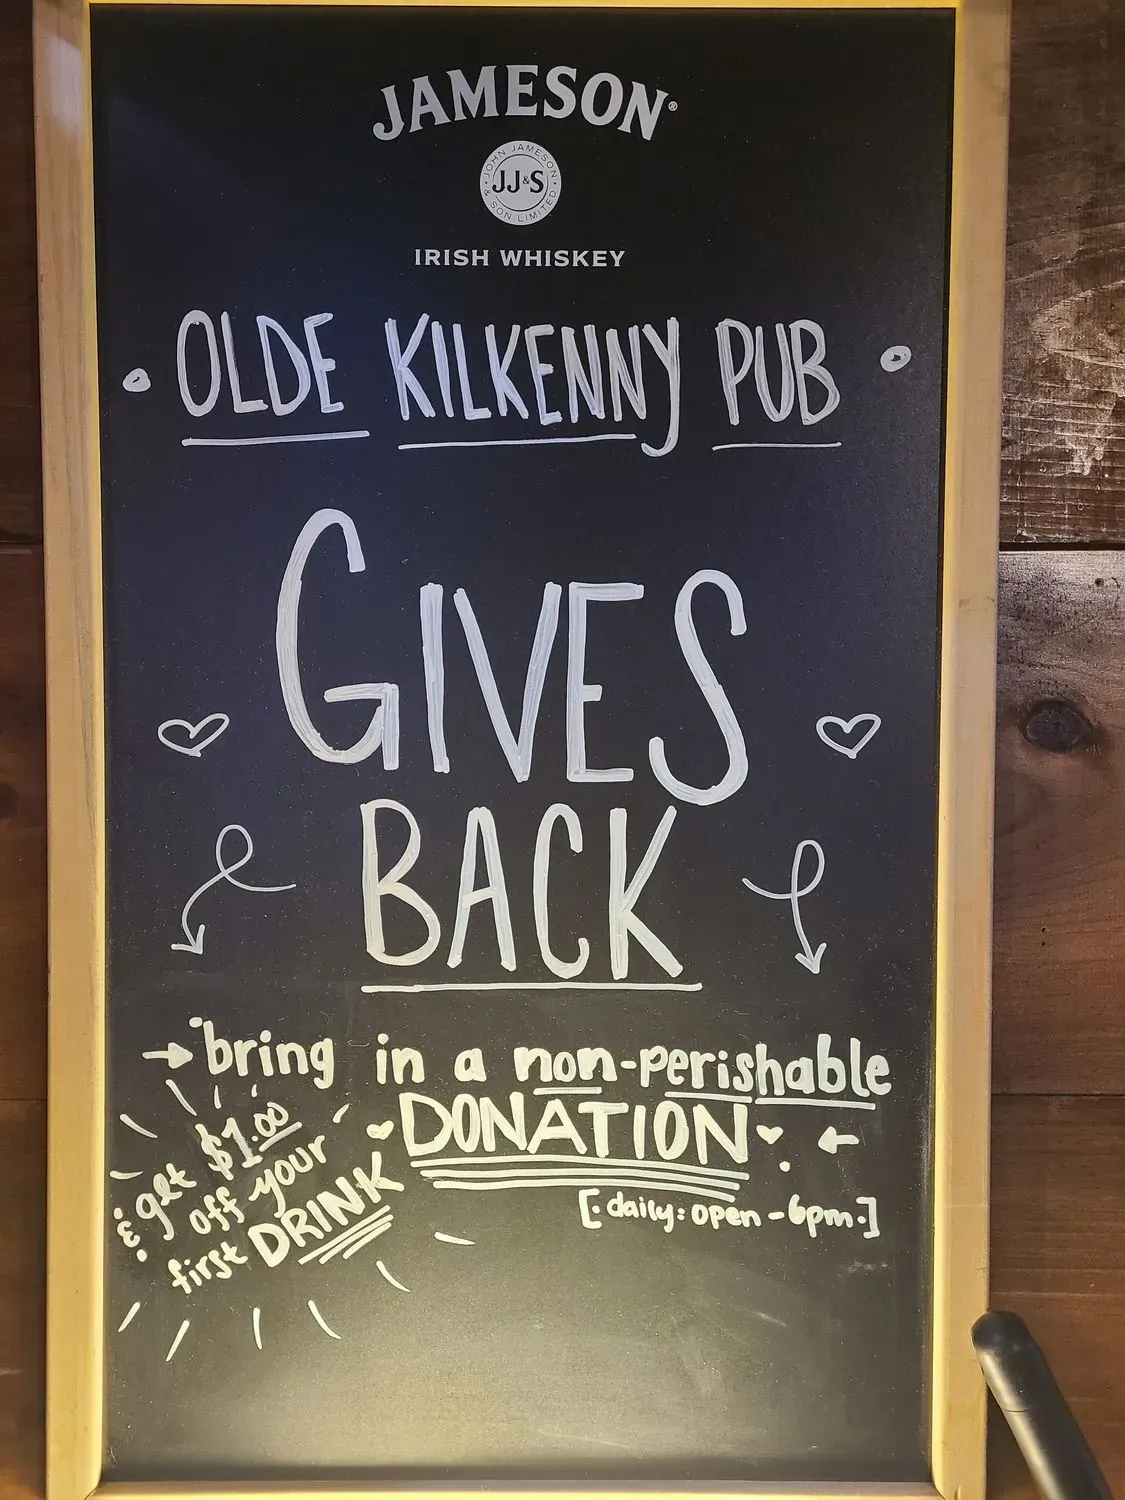 JAMESON®
JOHN JAMESON
JJ&S
& SON LIMITED
IRISH WHISKEY
OLDE KILKENNY PUB
GIVES
BACK
bring in a non-perishable
DONATION
[daily: open - 6pm]
& get $1.00
off your
first DRINK